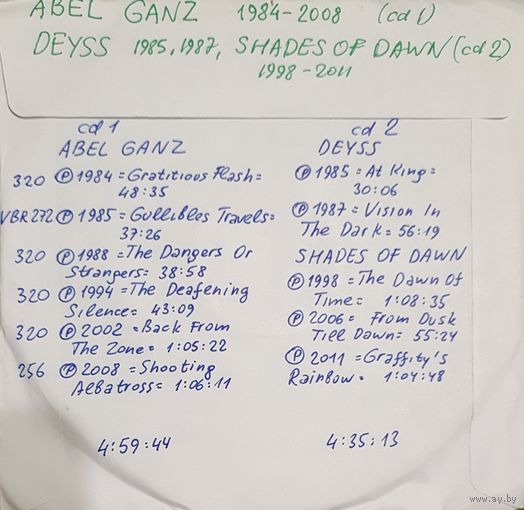 ABEL GANZ 1984-2008 (cd 1)
DEYSS 1985, 1987, SHADES OF DAWN (cd 2)
1998-2011
cd 1
ABEL GANZ
320 Ⓟ 1984 = Gratitious Flash =
48:35
VBR272 Ⓟ 1985 = Gullibles Travels =
37:26
320 Ⓟ 1988 = The Dangers Or
Strangers = 38:58
320 Ⓟ 1994 = The Deafening
Silence = 43:09
320 Ⓟ 2002 = Back From
The Zone = 1:05:22
256 Ⓟ 2008 = Shooting
Albatross = 1:06:11
4:59:44
cd 2
DEYSS
Ⓟ 1985 = At King =
30:06
Ⓟ 1987 = Vision In
The Dark = 56:19
SHADES OF DAWN
Ⓟ 1998 = The Dawn Of
Time = 1:08:35
Ⓟ 2006 = From Dusk
Till Dawn = 55:24
Ⓟ 2011 = Graffity's
Rainbow = 1:04:48
4:35:13
www.ay.by